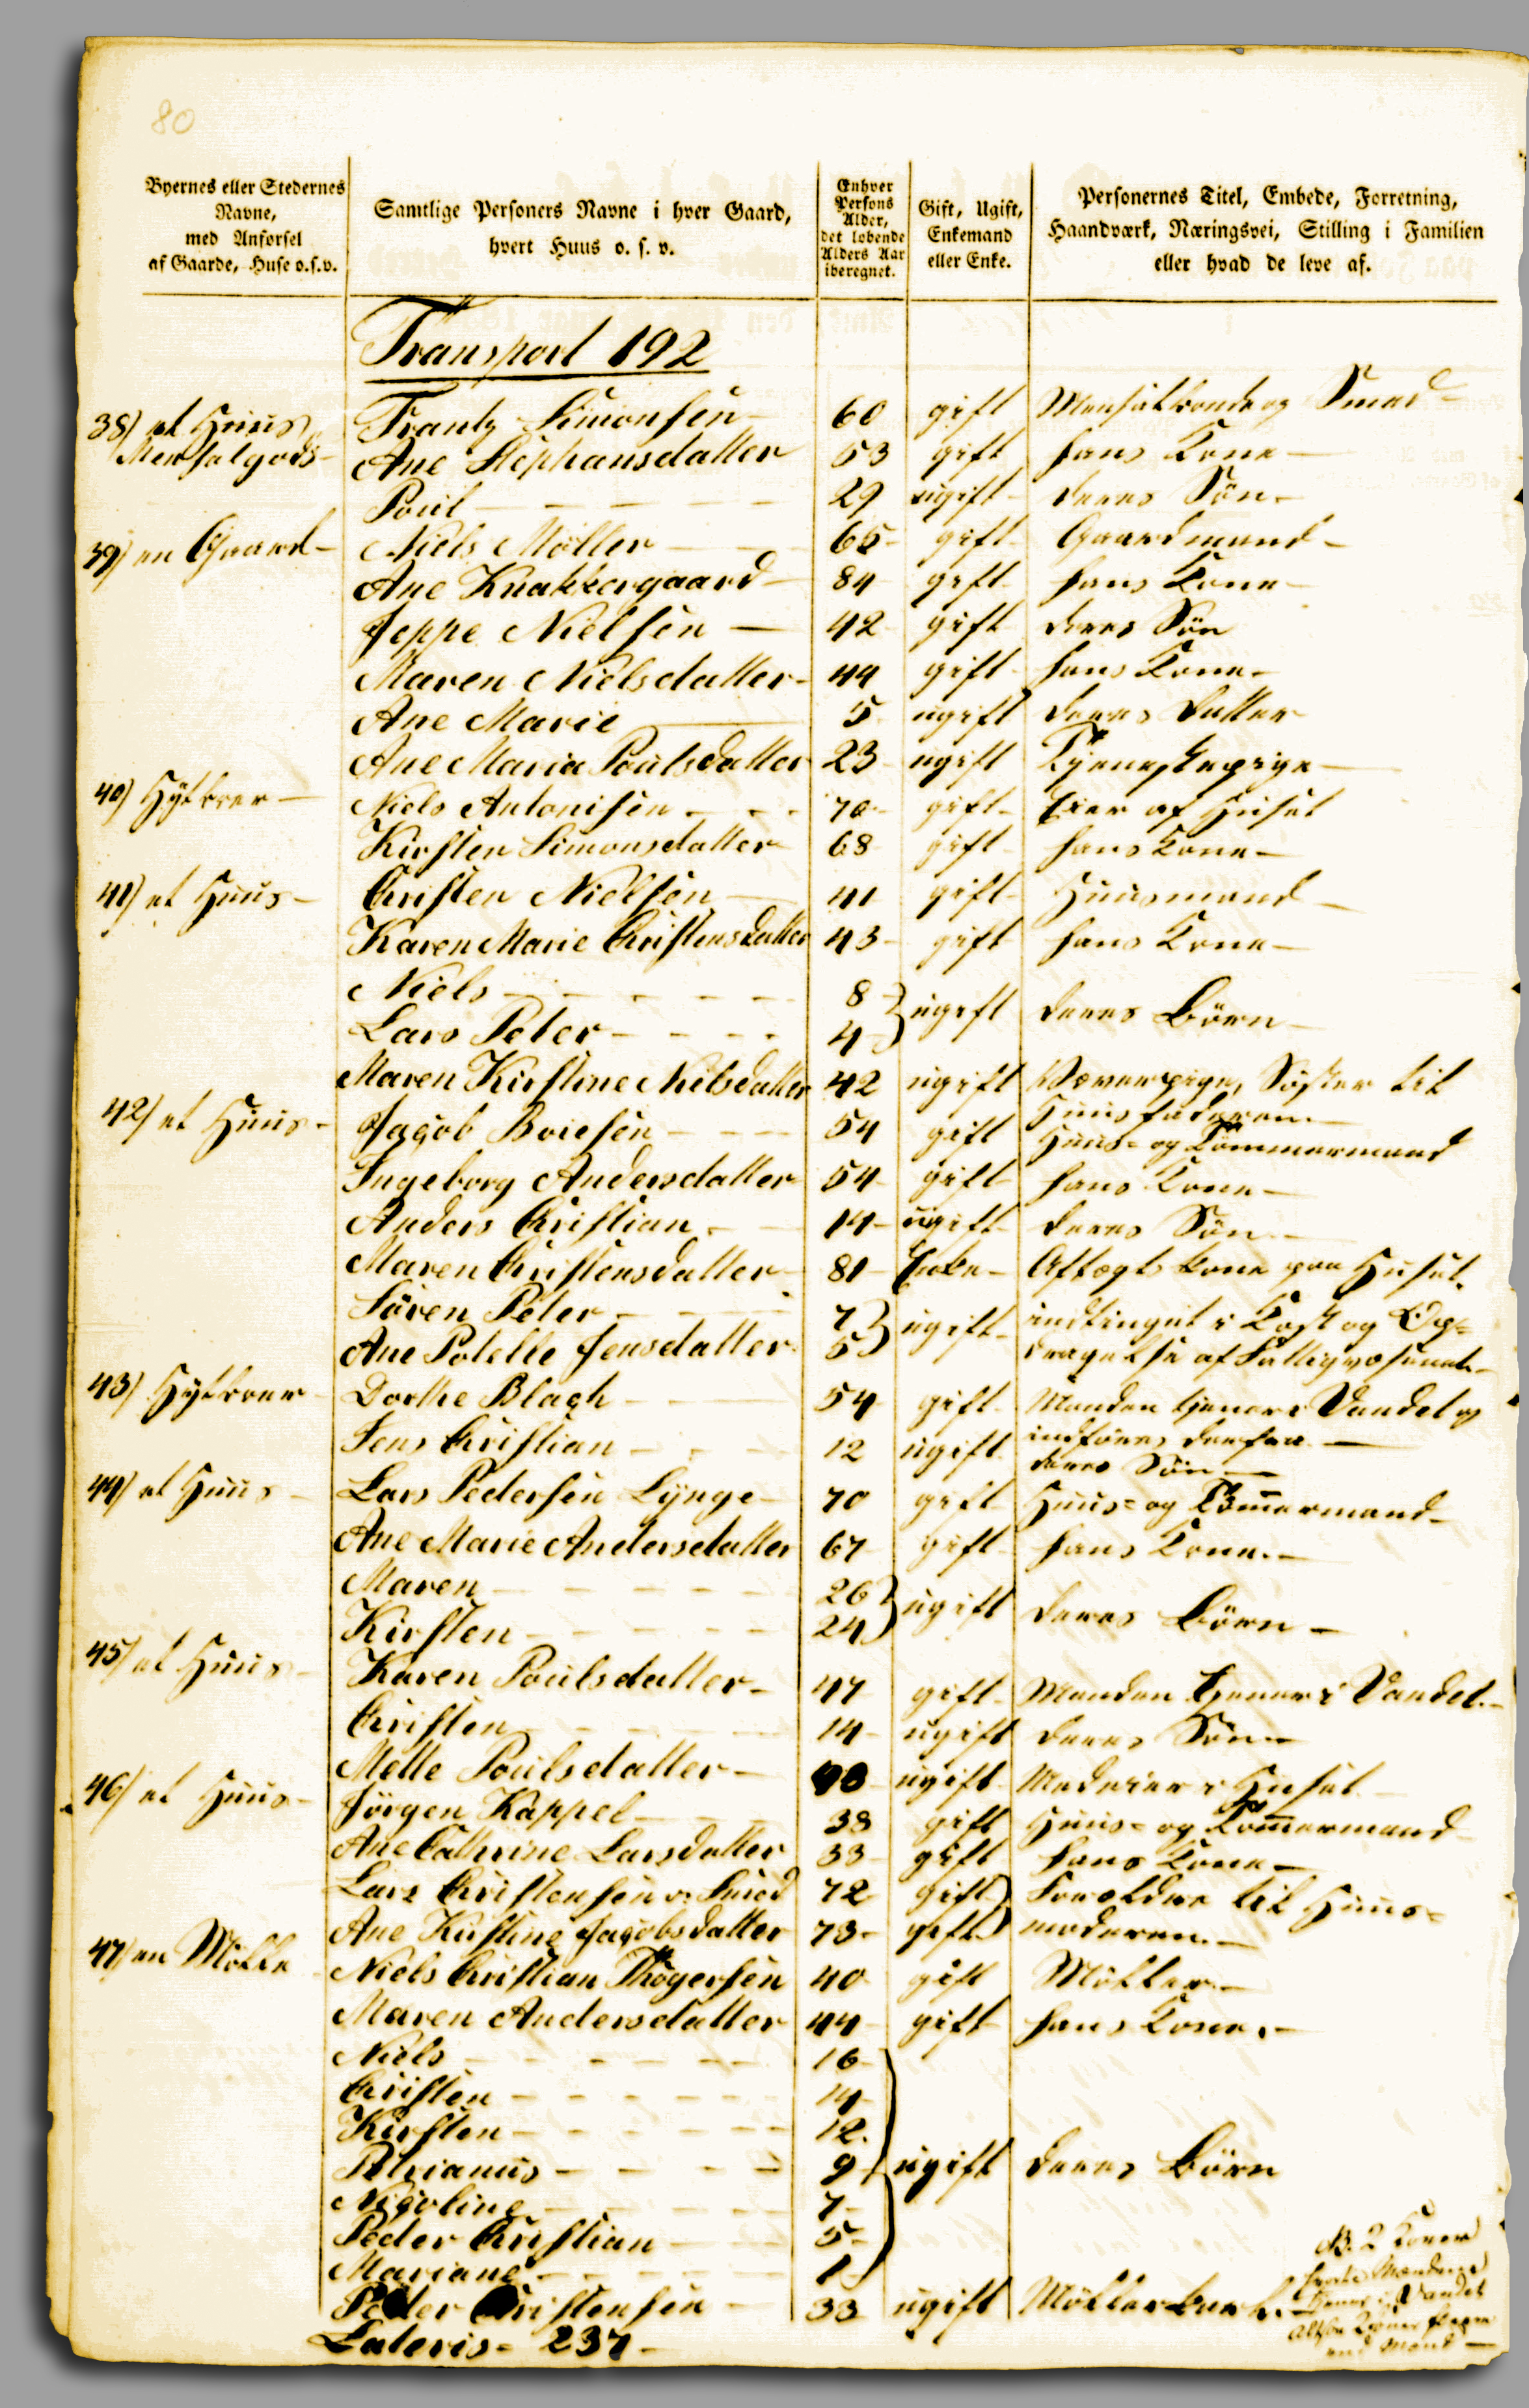 80
Byernes eller Stedernes Navne, med Anførsel af Gaarde, Huse o.s.v.
Samtlige Personers Navne i hver Gaard, hvert Huus o. s. v.
Enhver Persons Alder, det løbende Alders Aar iberegnet.
Gift, Ugift, Enkemand eller Enke.
Personernes Titel, Embede, Forretning, Haandværk, Næringsvei, Stilling i Familien eller hvad de leve af.
Transport 192
38) et Huus Mensalgods Frantz Simonsen 60 gift Mensalbonde og Smed
Ane Stephansdatter 53 gift hans Kone
Poul 29 ugift deres Søn
39) en Gaard Niels Møller 65 gift Gaardmand
Ane Knakkergaard 84 gift hans Kone
Jeppe Nielsen 42 gift deres Søn
Maren Nielsdatter 44 gift hans Kone
Ane Marie 5 ugift deres Datter
Ane Maria Poulsdatter 23 ugift Tjenestepige
40) Niels Antonisen 70 gift Eier af Huset
Kirsten Simonsdatter 68 gift hans Kone
41) et Huus Christen Nielsen 41 gift Huusmand
Karen Marie Christensdatter 43 gift hans Kone
Niels 8 ugift deres Børn
Lars Peter 4
Maren Kirstine Nielsdatter 42 ugift Væverpige, Søster til Huusfaderen
42) et Huus Jacob Boiesen 54 gift Huus- og Tømmermand
Ingeborg Andersdatter 54 gift hans Kone
Anders Christian 14 ugift deres Søn
Maren Christensdatter 81 Enke Aftægtskone paa Huset
Søren Peter 7 ugift indtinget i Kost og Op-
Ane Potelle Jensdatter 5 dragelse af Fattigvæsenet
43) Dorthe Blach 54 gift Manden tjener i Vandel og indføres derfra
Jens Christian 12 ugift deres Søn
44) et Huus Lars Pedersen Lynge 70 gift Huus- og Tømmermand
Ane Marie Andersdatter 67 gift hans Kone
Maren 26 ugift deres Børn
Kirsten 24
45) et Huus Karen Poulsdatter 47 gift Manden tjener i Vandel
Christen 14 ugift deres Søn
Mette Poulsdatter ugift Medeier i Huset
46) et Huus Jørgen Kappel 38 gift Huus- og Tømmermand
Ane Cathrine Larsdatter 33 gift hans Kone
Lars Christensen Smed 72 gift Forældre til Huus-
Ane Kirstine Jacobsdatter 73 gift moderen
47) en Mølle Niels Christian Thøgersen 40 gift Møller
Maren Andersdatter 44 gift hans Kone
Niels 16
Christen 14
Kirsten 12
Petrianus 9 ugift deres Børn
Nicoline 7
Peder Christian 5
Mariane 1
Peder Christensen 33 ugift Møllerkarl
Lateris 237
NB. 2 Koner